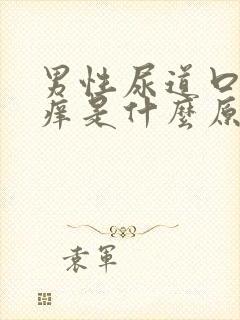 男性尿道口
痒是什麼原
袁軍